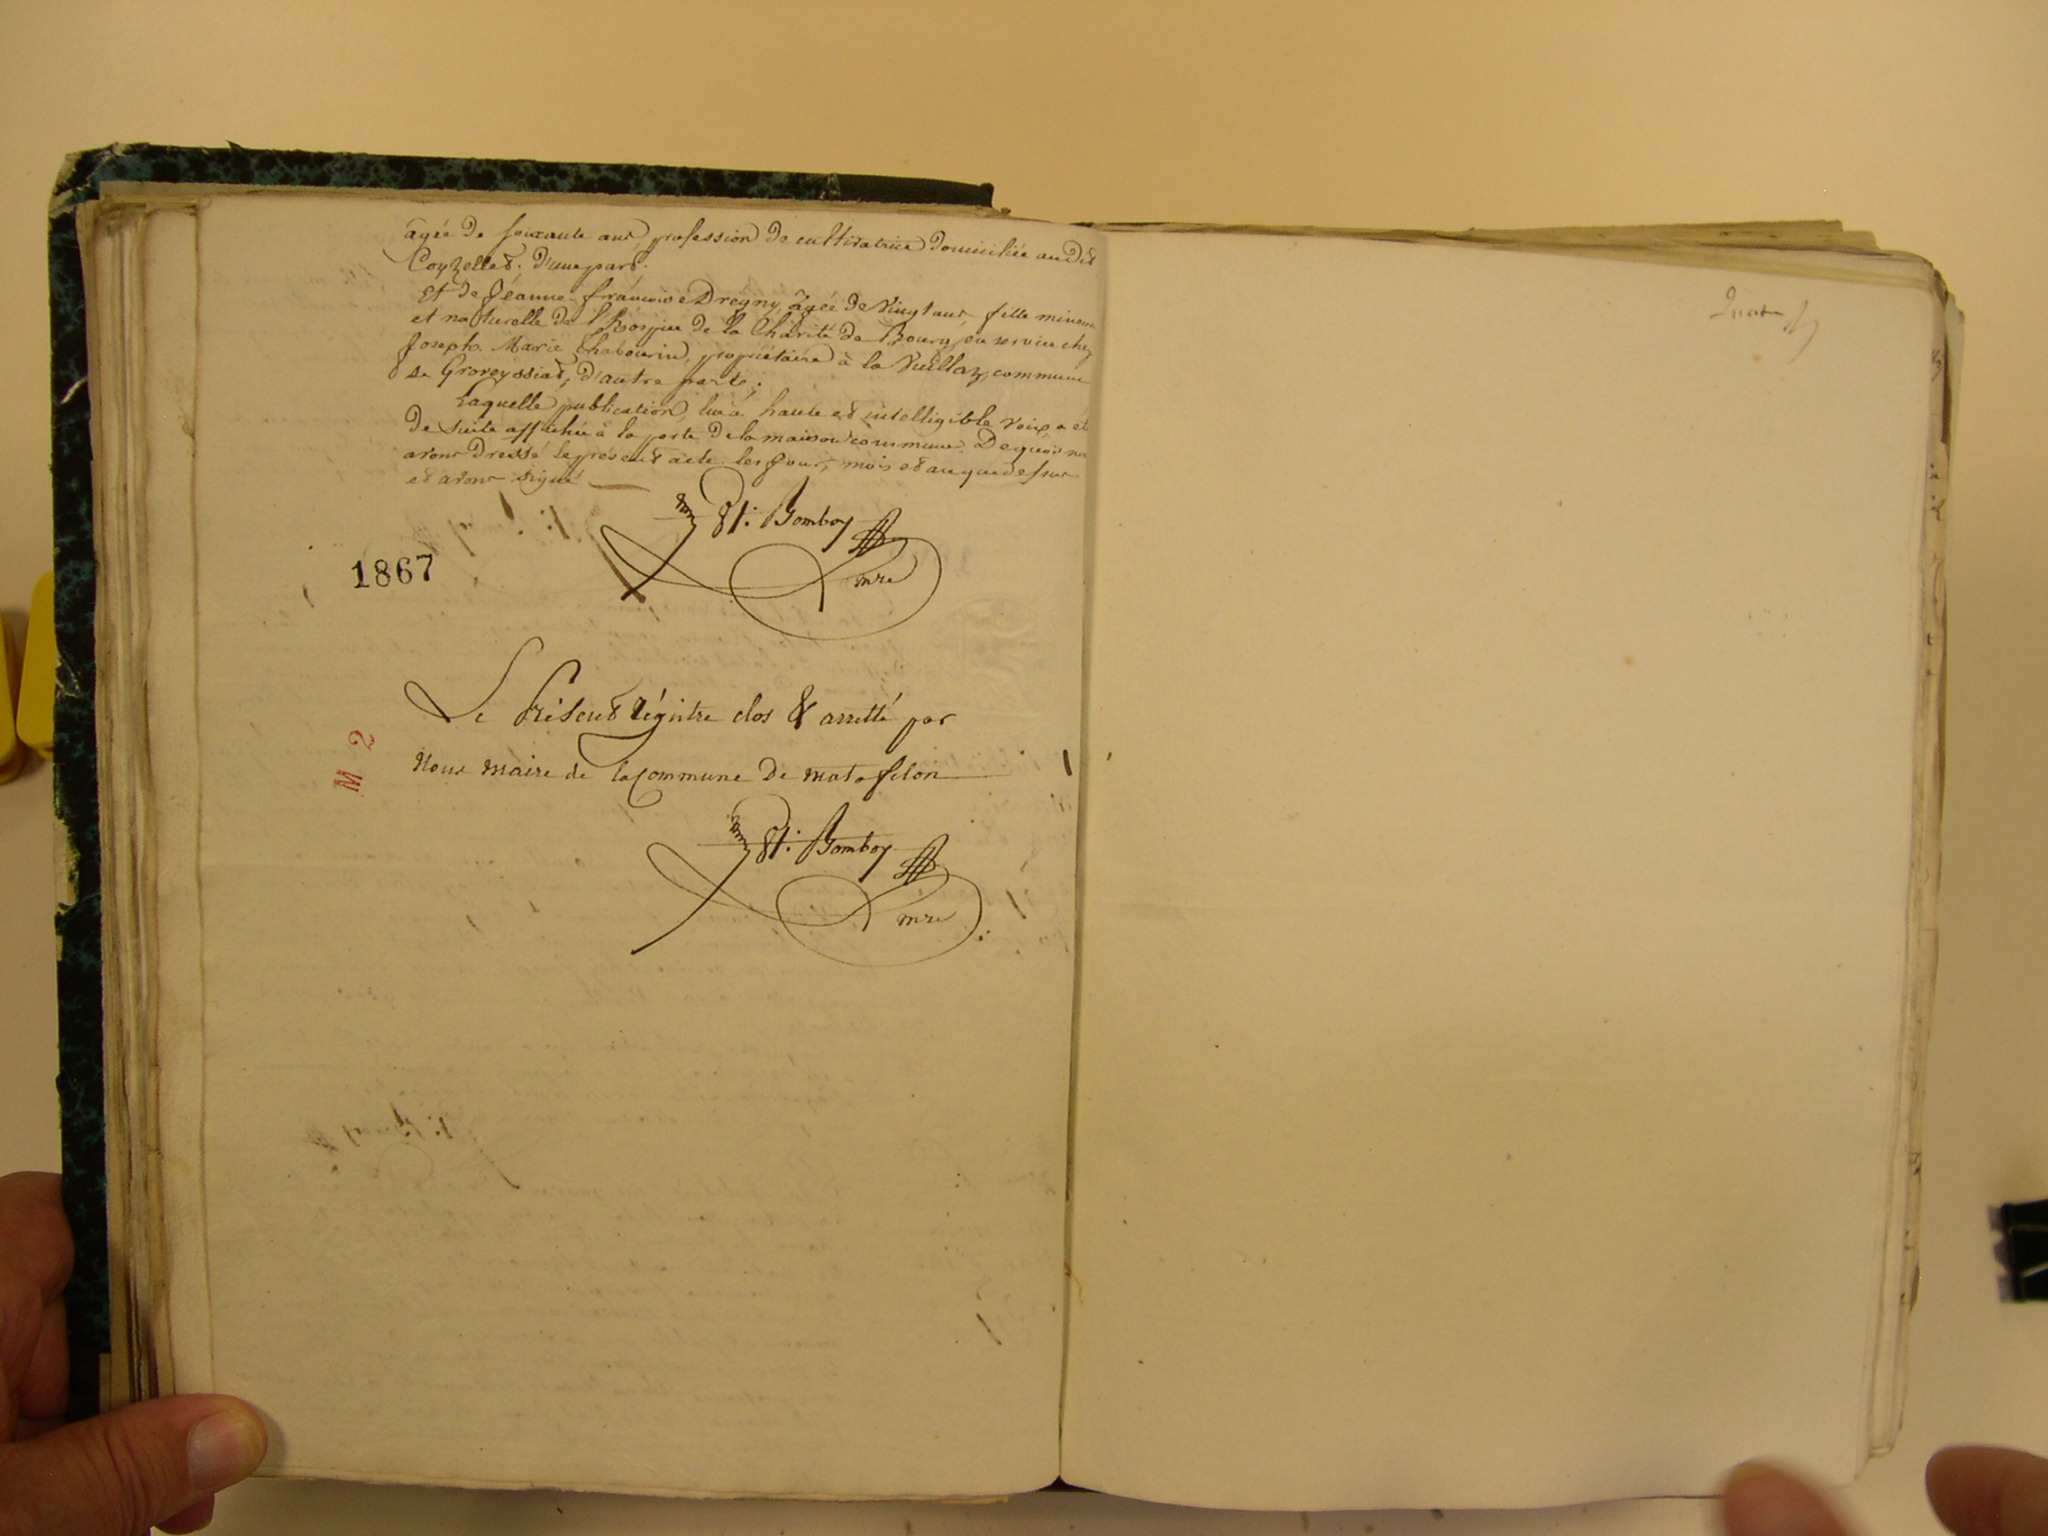 agée de soixante ans, profession de cultivatrice domiciliée au dit
Coyzelles; d'une part;
Et de Jeanne-françoise Dregny, âgée de vingt ans, fille mineure
et naturelle de l'hospice de la Charité de Bourg, en service chez
Joseph-Marie Chabourin, propriétaire à la Vuillaz, commune
de Groreyssiat, d'autre parte;
Laquelle publication, lue à haute et intelligible voix, a été
de suite affichée à la porte de la maison commune. De quoi nous
avons dressé le présent acte les jour, mois et an que dessus
et avons signé
Bomboy
mre
1867
Le Présent Régistre clos & arretté par
Nous maire de la Commune de matafelon
M 2
Bomboy
mre